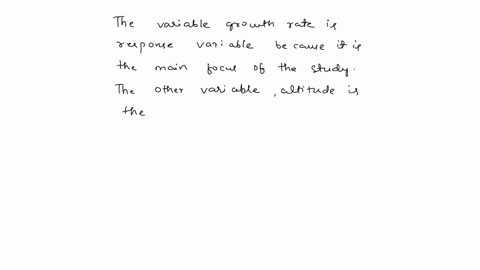 The variable growth rate is
response variable because it is
the main focus of the study.
The other variable, altitude is
the